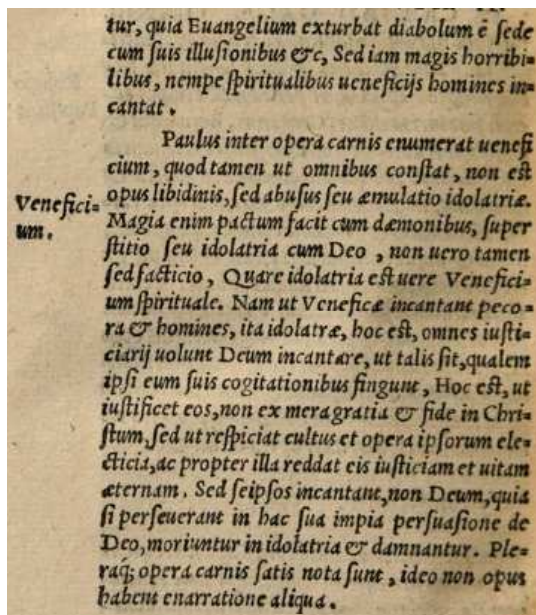 tur, quia Euangelium exturbat diabolum ē sede
cum suis illusionibus &c, Sed iam magis horribi=
libus, nempe spiritualibus ueneficijs homines in=
cantat.
Paulus inter opera carnis enumerat uenefi
cium, quod tamen ut omnibus constat, non est
opus libidinis, sed abusus seu æmulatio idolatriæ.
Venefici=
um.
Magia enim pactum facit cum dæmonibus, super
stitio seu idolatria cum Deo, non uero tamen
sed facticio, Quare idolatria est uere Venefici=
um spirituale. Nam ut Veneficæ incantant peco=
ra & homines, ita idolatræ, hoc est, omnes iusti=
ciarij uolunt Deum incantare, ut talis sit, qualem
ipsi eum suis cogitationibus fingunt, Hoc est, ut
iustificet eos, non ex mera gratia & fide in Chri=
stum, sed ut respiciat cultus et opera ipsorum ele=
cticia, ac propter illa reddat eis iusticiam et uitam
æternam. Sed seipsos incantant, non Deum, quia
si perseuerant in hac sua impia persuasione de
Deo, moriuntur in idolatria & damnantur. Ple=
raq; opera carnis satis nota sunt, ideo non opus
habent enarratione aliqua.